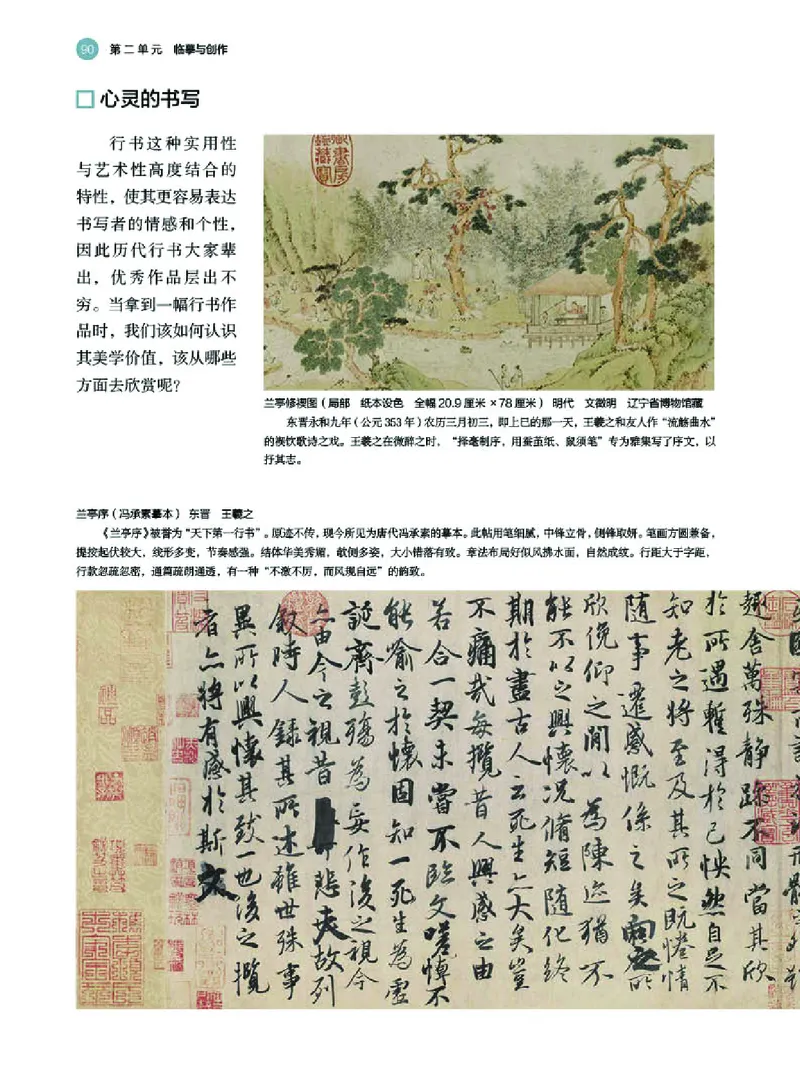 90 第二单元 临摹与创作
心灵的书写
行书这种实用性
与艺术性高度结合的
特性，使其更容易表达
书写者的情感和个性，
因此历代行书大家辈
出，优秀作品层出不
穷。当拿到一幅行书作
品时，我们该如何认识
其美学价值，该从哪些
方面去欣赏呢？
兰亭修禊图（局部 纸本设色 全幅20.9厘米×78厘米） 明代 文徵明 辽宁省博物馆藏
东晋永和九年（公元353年）农历三月初三，即上巳的那一天，王羲之和友人作“流觞曲水”
的禊饮歌诗之戏。王羲之在微醉之时，“择毫制序，用蚕茧纸、鼠须笔”专为雅集写了序文，以
抒其志。
兰亭序（冯承素摹本） 东晋 王羲之
《兰亭序》被誉为“天下第一行书”。原迹不传，现今所见为唐代冯承素的摹本。此帖用笔细腻，中锋立骨，侧锋取妍。笔画方圆兼备，
提按起伏较大，线形多变，节奏感强。结体华美秀媚，欹侧多姿，大小错落有致。章法布局好似风拂水面，自然成纹。行距大于字距，
行款忽疏忽密，通篇疏朗通透，有一种“不激不厉，而风规自远”的韵致。
趣舍萬殊静躁不同當其欣
於所遇暫得於己怏然自足不
知老之將至及其所之既惓情
隨事遷感慨係之矣向之所
欣俛仰之閒以為陳迹猶不
能不以之興懷況脩短隨化終
期於盡古人云死生亦大矣豈
不痛哉每攬昔人興感之由
若合一契未嘗不臨文嗟悼不
能喻之於懷固知一死生為虛
誕齊彭殤為妄作後之視今
亦由今之視昔 悲夫故列
敘時人錄其所述雖世殊事
異所以興懷其致一也後之攬
者亦將有感於斯文